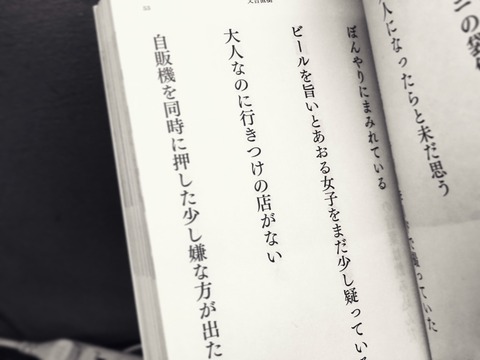 の袋
人になったらと未だ思う
ぼんやりにまみれている
ビールを旨いとあおる女子をまだ少し疑ってい
大人なのに行きつけの店がない
自販機を同時に押した少し嫌な方が出た